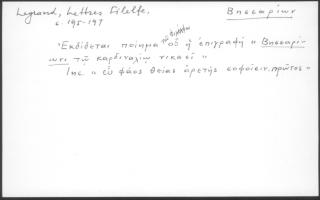 Legrand, Lettres Filelfe. Βησσαρίων
σ. 195-197
τοῦ Φιλέλφου
Ἐκδίδεται ποίημα οὗ ἡ ἐπιγραφὴ « Βησσαρί-
ωνι τῷ καρδιναλίῳ νικαεῖ »
Inc « ὦ φάος θείας ἀρετῆς σοφοῖσιν πρῶτος »